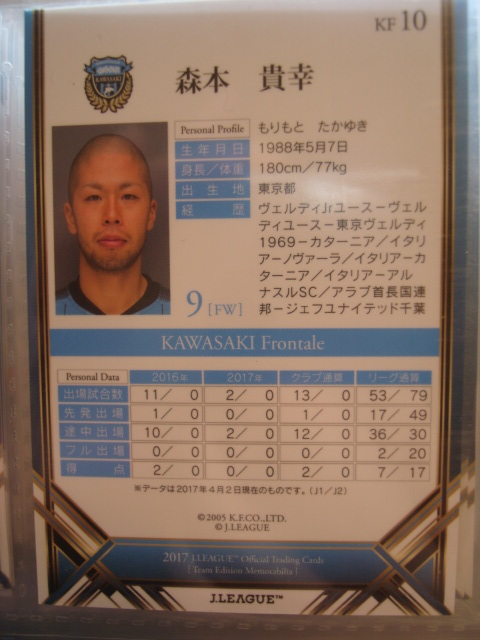 KF 10
KAWASAKI
森本 貴幸
Personal Profile もりもと たかゆき
生年月日 1988年5月7日
身長／体重 180cm／77kg
出生地 東京都
経歴 ヴェルディJrユース－ヴェル
ディユース－東京ヴェルディ
1969－カターニア／イタリ
ア－ノヴァーラ／イタリア－カ
ターニア／イタリア－アル
ナスルSC／アラブ首長国連
邦－ジェフユナイテッド千葉
9 [FW]
KAWASAKI Frontale
Personal Data 2016年 2017年 クラブ通算 リーグ通算
出場試合数 11／ 0 2／ 0 13／ 0 53／ 79
先発出場 1／ 0 0／ 0 1／ 0 17／ 49
途中出場 10／ 0 2／ 0 12／ 0 36／ 30
フル出場 0／ 0 0／ 0 0／ 0 2／ 20
得点 2／ 0 0／ 0 2／ 0 7／ 17
※データは2017年4月2日現在のものです。（J1／J2）
©2005 K.F.CO.,LTD.
© J.LEAGUE
2017 J.LEAGUE™ Official Trading Cards
[ Team Edition Memorabilia ]
J.LEAGUE™